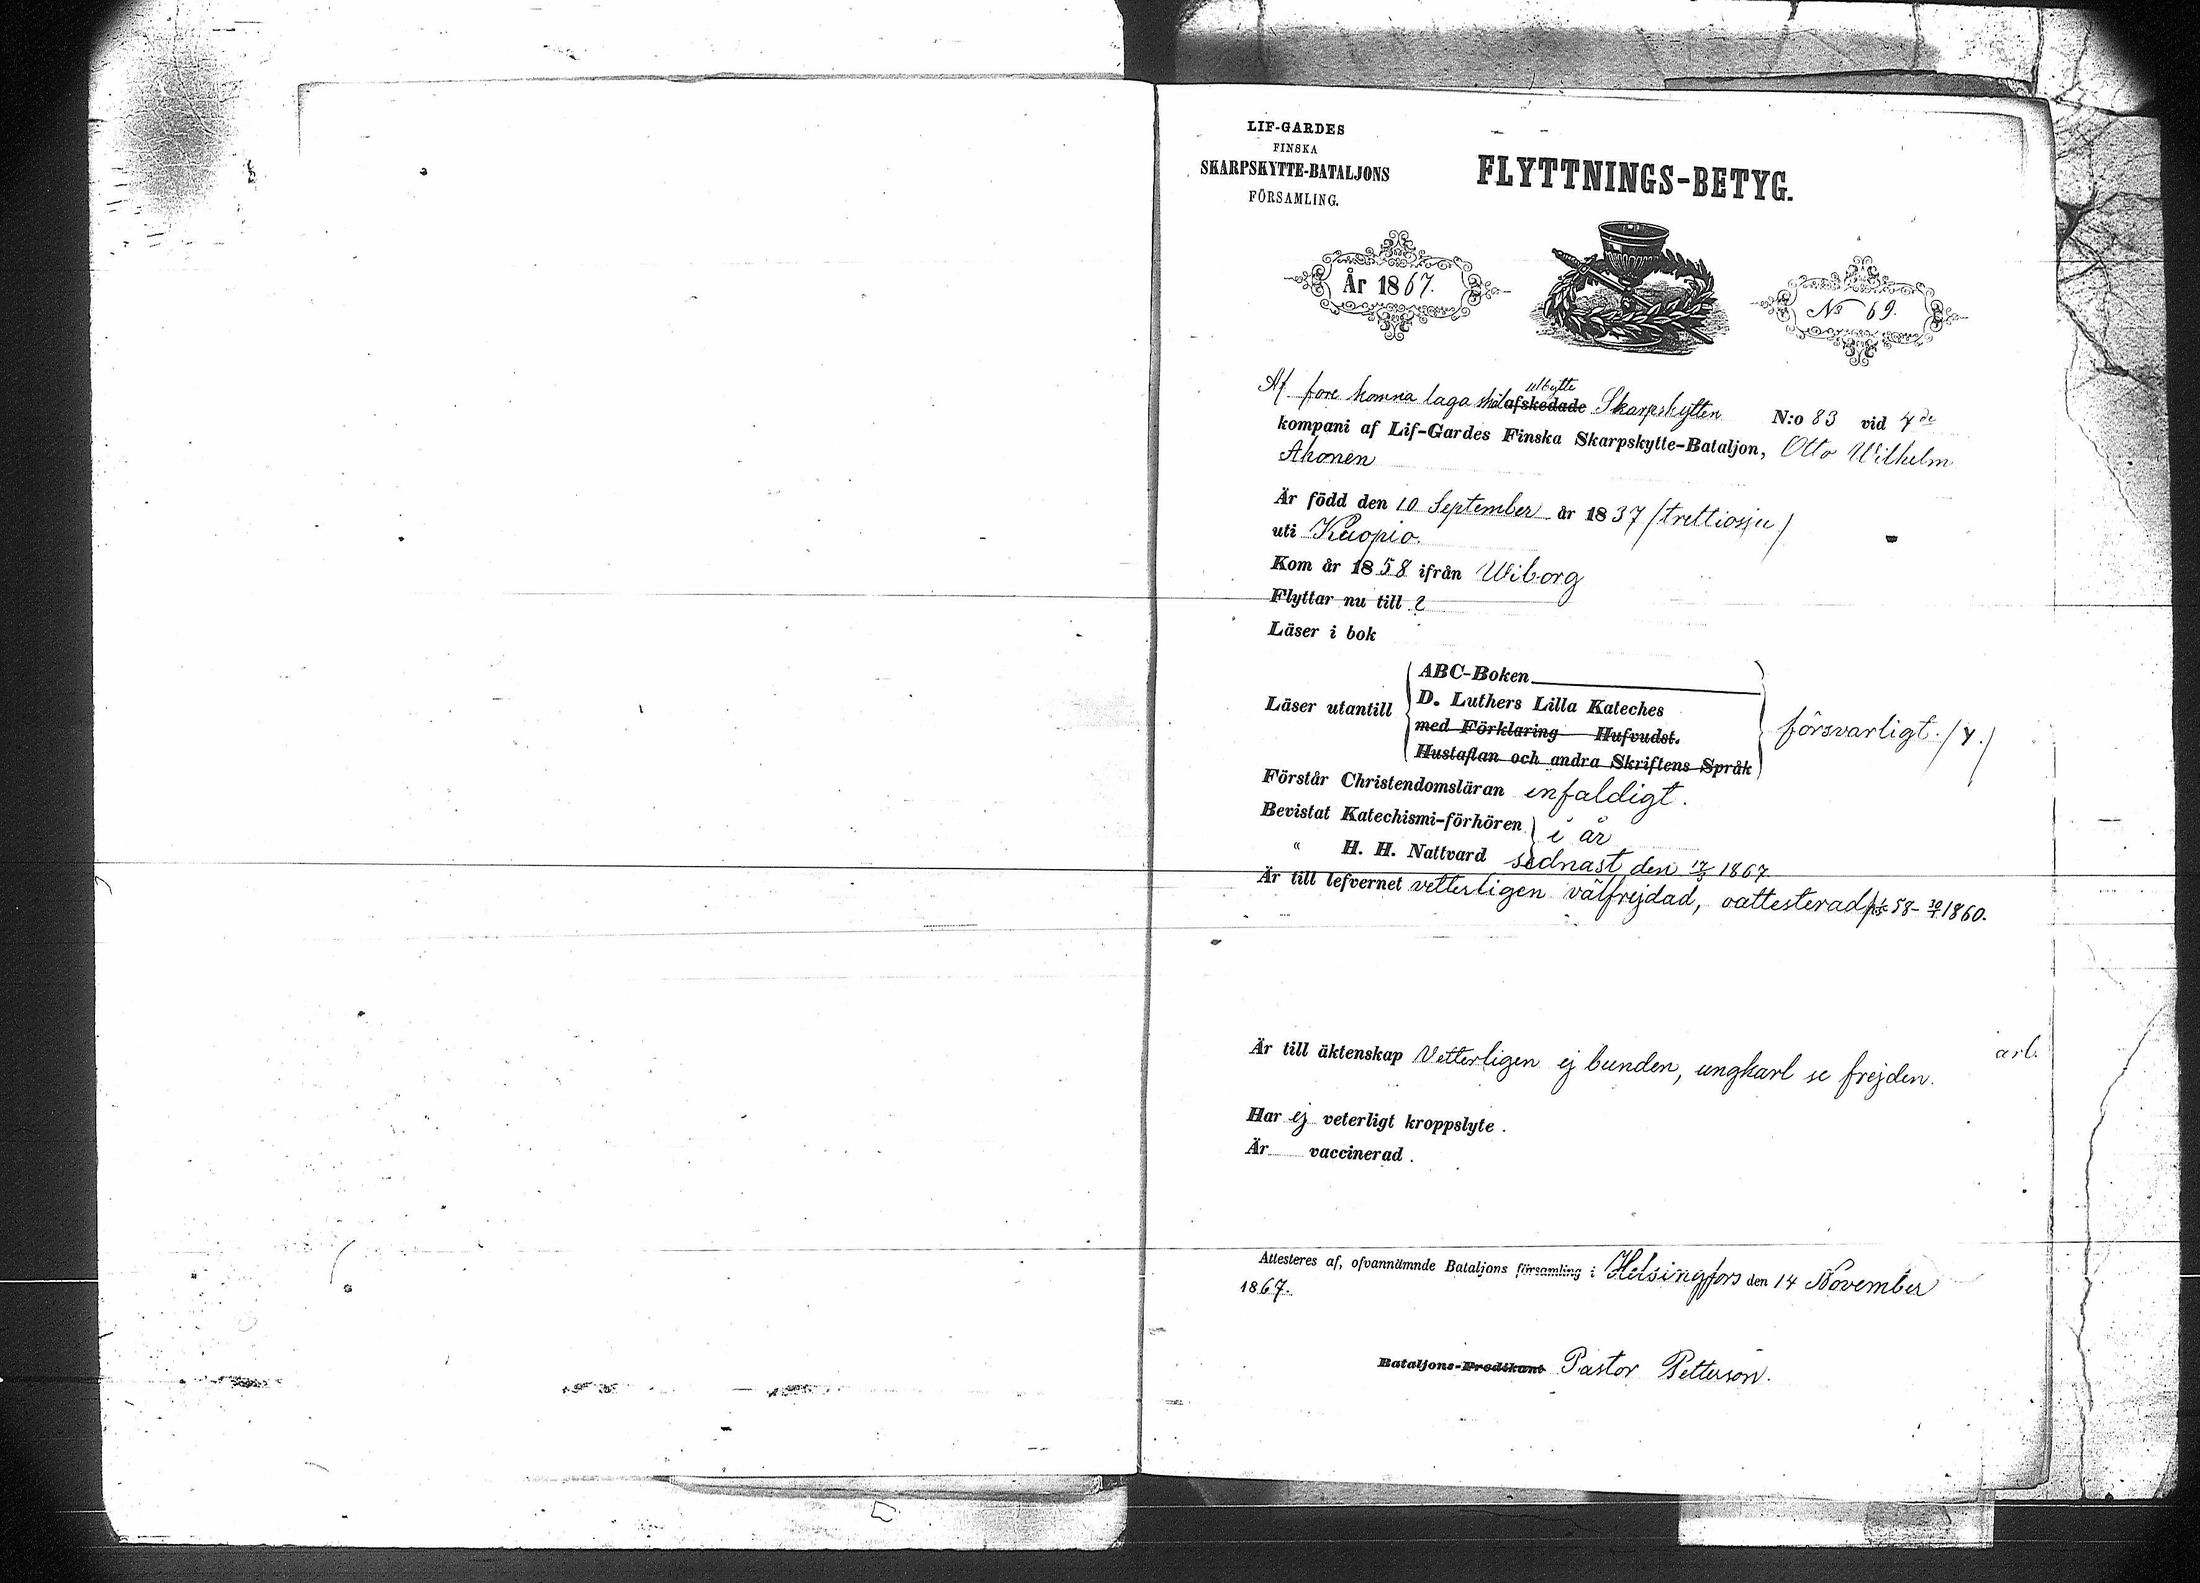 LIF-GARDES
FINSKA
SKARPSKYTTE-BATALJONS
FÖRSAMLING.
FLYTTNINGS-BETYG.
År 1867.
No 69.
utbytte
Af före komna laga skäl afskedade Skarpskytten N:o 83 vid 4de
kompani af Lif-Gardes Finska Skarpskytte-Bataljon, Otto Wilhelm
Ahonen
Är född den 10 September år 1837 /trettiosju/
uti Kuopio.
Kom år 1858 ifrån Wiborg
Flyttar nu till ?
Läser i bok
Läser utantill
ABC-Boken
D. Luthers Lilla Kateches
med Förklaring Hufvudst.
Hustaflan och andra Skriftens Språk
försvarligt. /4./
Förstår Christendomsläran enfaldigt.
Bevistat Katechismi-förhören i år
" H. H. Nattvard sednast den 17/3 1867
Är till lefvernet vetterligen välfrejdad, oattesterad 58- 1860.
Är till äktenskap Vetterligen ej bunden, ungkarl se frejden.
arb.
Har ej veterligt kroppslyte.
Är vaccinerad.
Attesteres af, ofvannämnde Bataljons församling i Helsingfors den 14 November
1867.
Bataljons-Predikant Pastor Petterson.